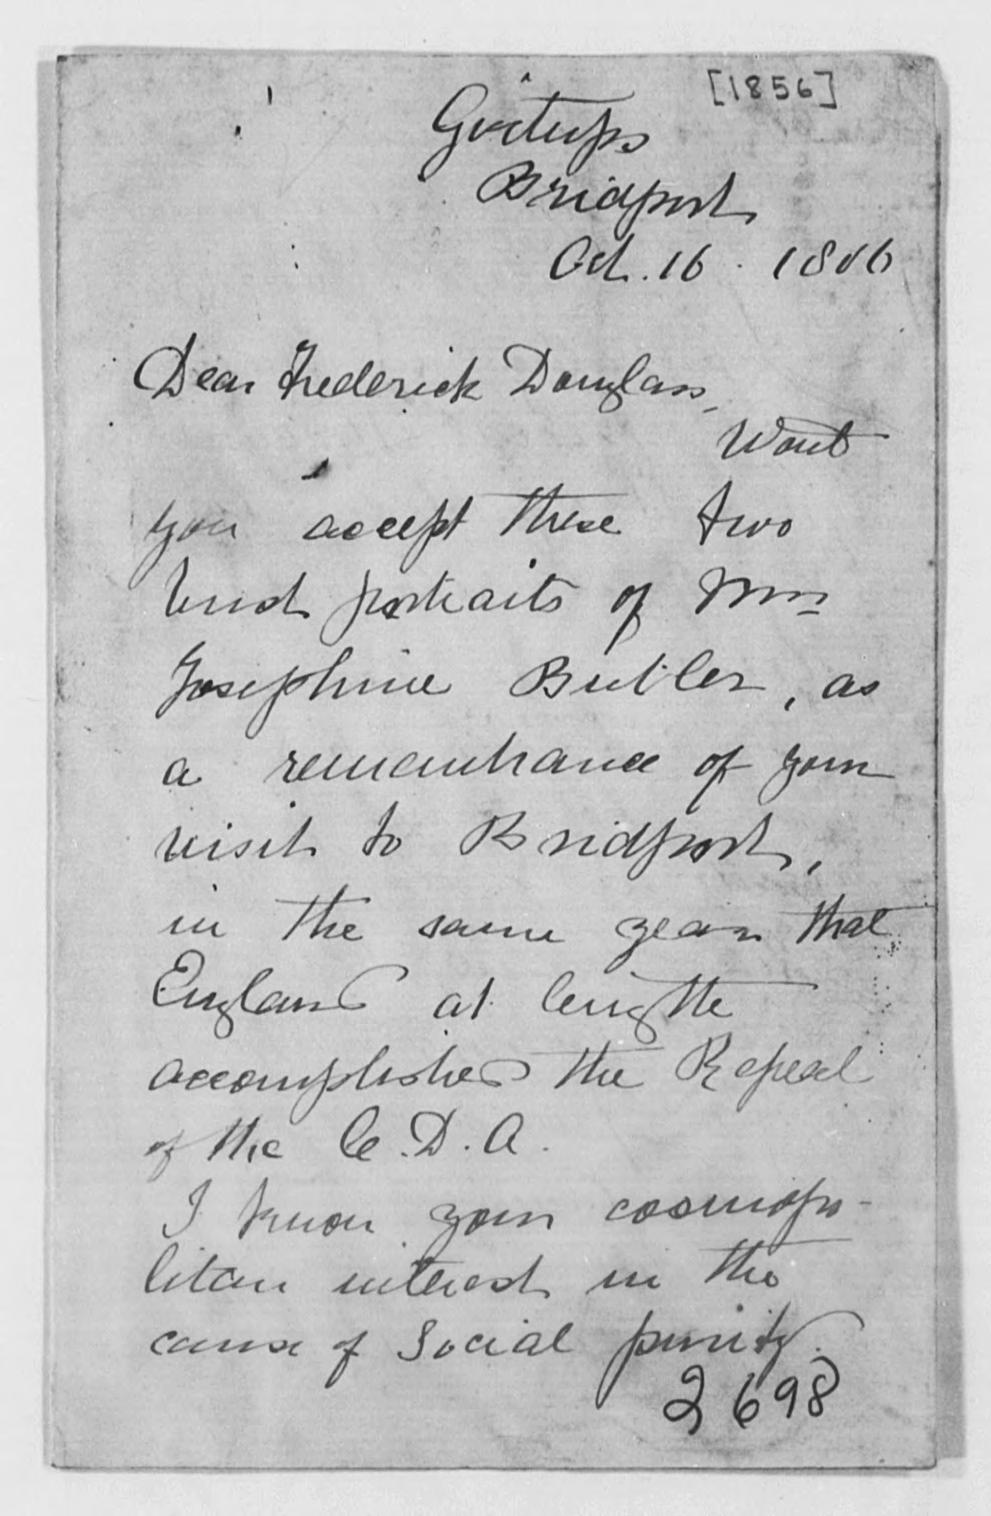 [1856]
Girtups
Bridport
Oct. 16. 1886
Dear Frederick Douglass,
Wont
you accept these two
bust portraits of Mrs
Josephine Butler, as
a remembrance of your
visit to Bridport,
in the same year that
England at length
accomplished the Repeal
of the C.D.A.
I know your cosmopo-
litan interest in the
cause of Social purity.
2698